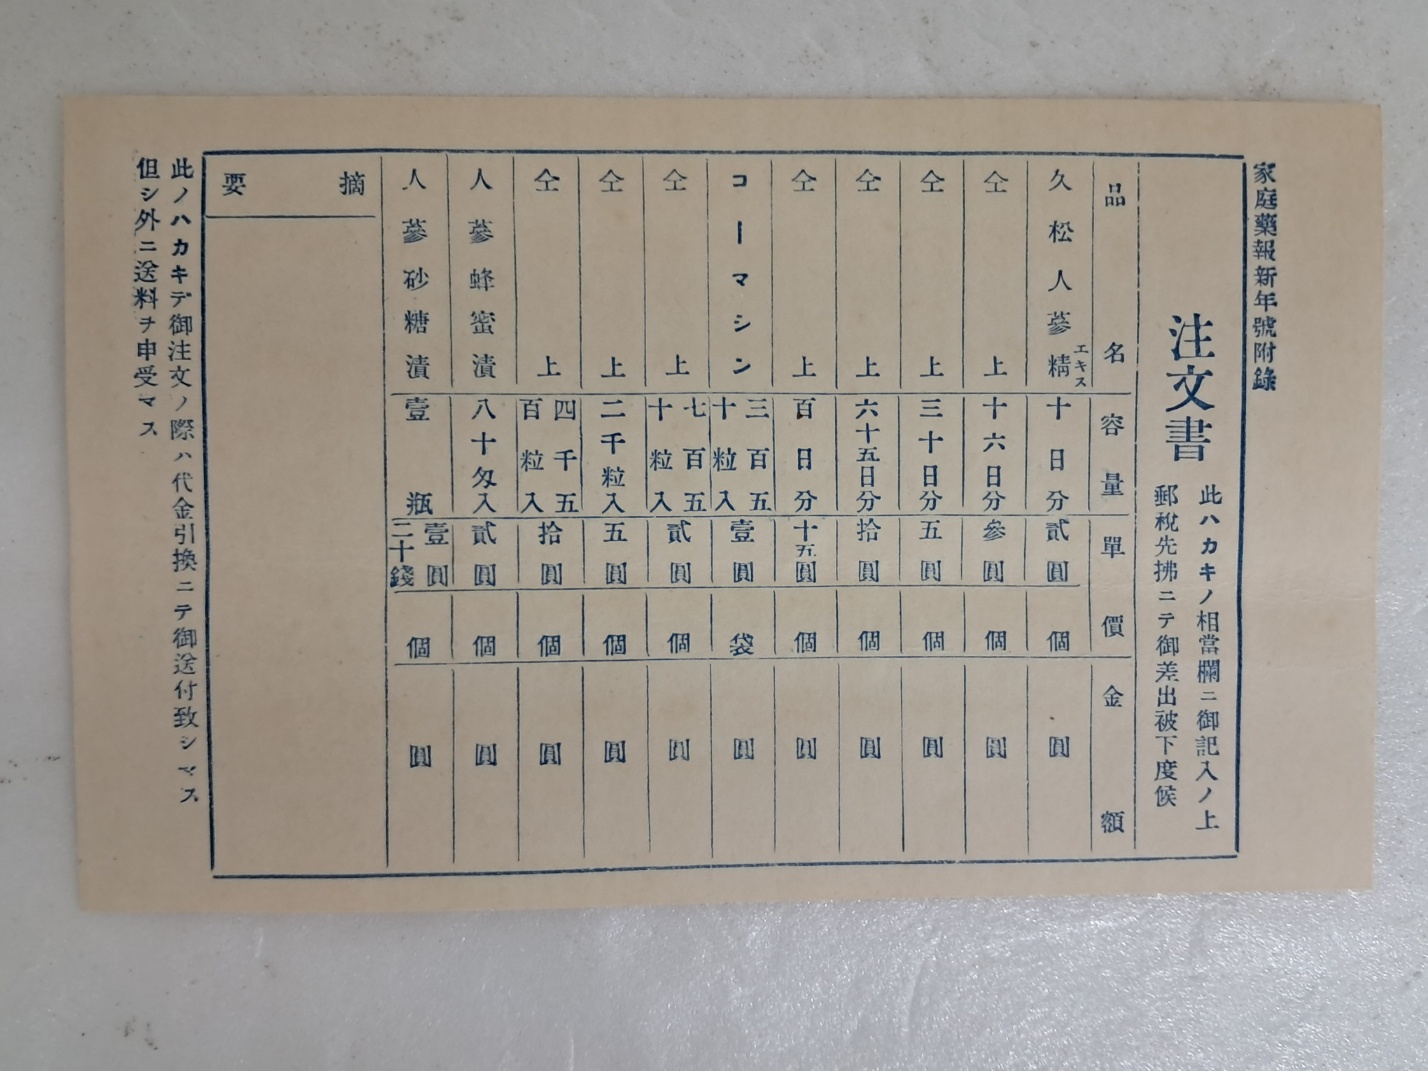 家庭藥報新年號附錄
注文書
此ハカキノ相當欄ニ御記入ノ上
郵稅先拂ニテ御差出被下度候
品名 容量 單價 金額
久松人蔘精エキス 十日分 貳圓 個 圓
仝上 十六日分 參圓 個 圓
仝上 三十日分 五圓 個 圓
仝上 六十五日分 拾圓 個 圓
仝上 百日分 十五圓 個 圓
コーマシン 三百五十粒入 壹圓 袋 圓
仝上 七百五十粒入 貳圓 個 圓
仝上 二千粒入 五圓 個 圓
仝上 四千五百粒入 拾圓 個 圓
人蔘蜂蜜漬 八十匁入 貳圓 個 圓
人蔘砂糖漬 壹瓶 壹圓二十錢 個 圓
摘要
此ノハカキデ御注文ノ際ハ代金引換ニテ御送付致シマス
但シ外ニ送料ヲ申受マス